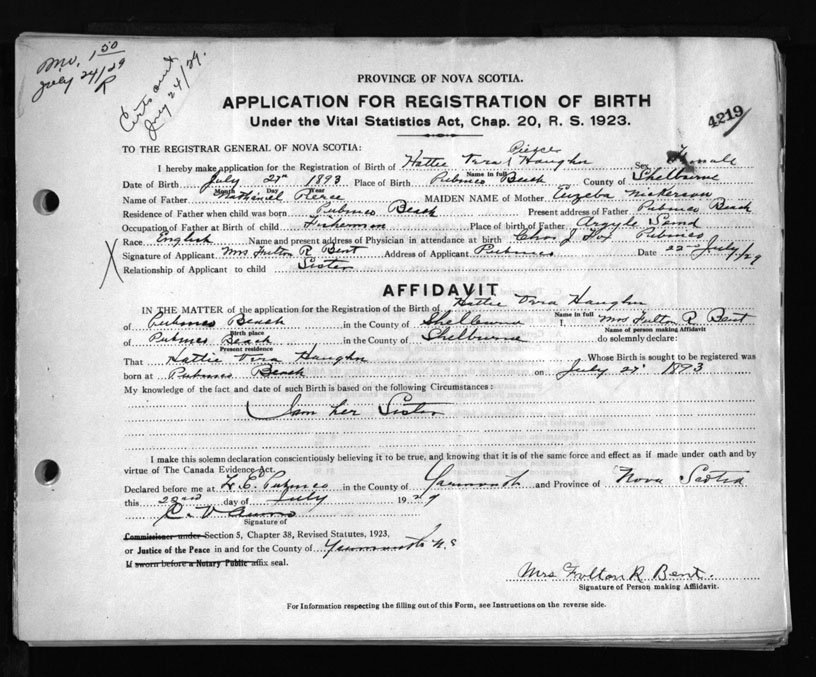 Mv. 1.50
July 24/29
R
Certs out
July 24/29.
PROVINCE OF NOVA SCOTIA.
APPLICATION FOR REGISTRATION OF BIRTH
4219
Under the Vital Statistics Act, Chap. 20, R. S. 1923.
TO THE REGISTRAR GENERAL OF NOVA SCOTIA:
Pierce
I hereby make application for the Registration of Birth of Hattie Vera Haughn Sex Female
Name in full
Date of Birth July 27th 1893 Place of Birth Pubnico Beach County of Shelburne
Month Day Year
Name of Father Nathaniel Pierce MAIDEN NAME of Mother Nickerson
Residence of Father when child was born Pubnico Beach Present address of Father Pubnico Beach
Occupation of Father at Birth of child Fisherman Place of birth of Father Argyle Sound
Race English Name and present address of Physician in attendance at birth Chas J Fox Pubnico
Signature of Applicant Mrs Fulton R Bent Address of Applicant Pubnico Date 22nd July/29
Relationship of Applicant to child Sister
X
AFFIDAVIT
IN THE MATTER of the application for the Registration of the Birth of Hattie Vera Haughn
Name in full
of Pubnico Beach in the County of Shelburne I, Mrs Fulton R Bent
Birth place Name of person making affidavit
of Pubnico Beach in the County of Shelburne do solemnly declare:
Present residence
That Hattie Vera Haughn Whose Birth is sought to be registered was
born at Pubnico Beach on July 27 1893
My knowledge of the fact and date of such Birth is based on the following Circumstances:
I am her Sister
I make this solemn declaration conscientiously believing it to be true, and knowing that it is of the same force and effect as if made under oath and by
virtue of The Canada Evidence Act.
Declared before me at E. Pubnico in the County of Yarmouth and Province of Nova Scotia
this 23rd day of July 1929
Signature of
Commissioner under Section 5, Chapter 38, Revised Statutes, 1923,
or Justice of the Peace in and for the County of Yarmouth N.S
If sworn before a Notary Public affix seal.
Mrs Fulton R Bent.
Signature of Person making Affidavit.
For Information respecting the filling out of this Form, see Instructions on the reverse side.